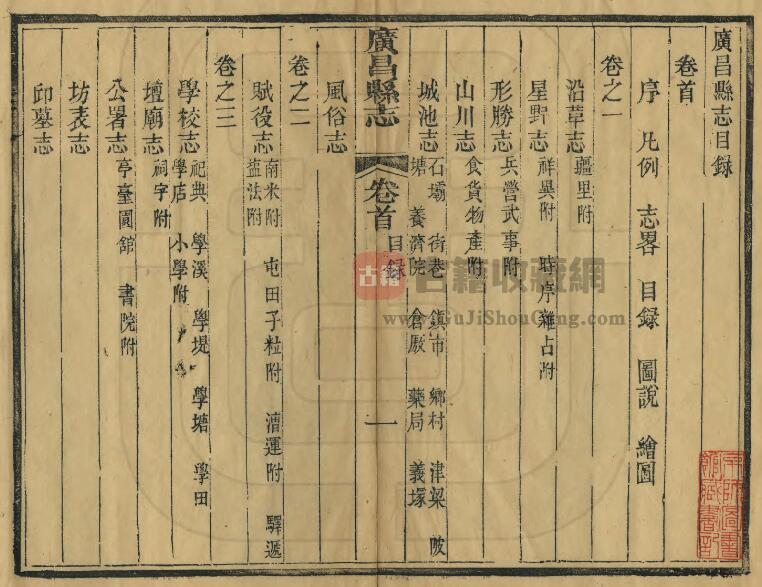 廣昌縣志目録
卷首
序 凡例 志畧 目録 圖說 繪圖
卷之一
沿革志 疆里附
星野志 祥異附 時序雜占附
形勝志 兵營武事附
山川志 食貨物產附
城池志 石壩 街巷 鎮市 鄉村 津梁 陂
塘 養濟院 倉厫 藥局 義塚
廣昌縣志 卷首 目録 一
風俗志
卷之二
賦役志 南米附 屯田子粒附 漕運附 驛遞
鹽法附
卷之三
學校志 祀典 學溪 學堤 學塘 學田
學店 小學附
壇廟志 祠宇附
公署志 亭臺園舘 書院附
坊表志
邱墓志
京師圖書
館藏書記
古籍 古籍收藏網
www.GuJiShouCang.com